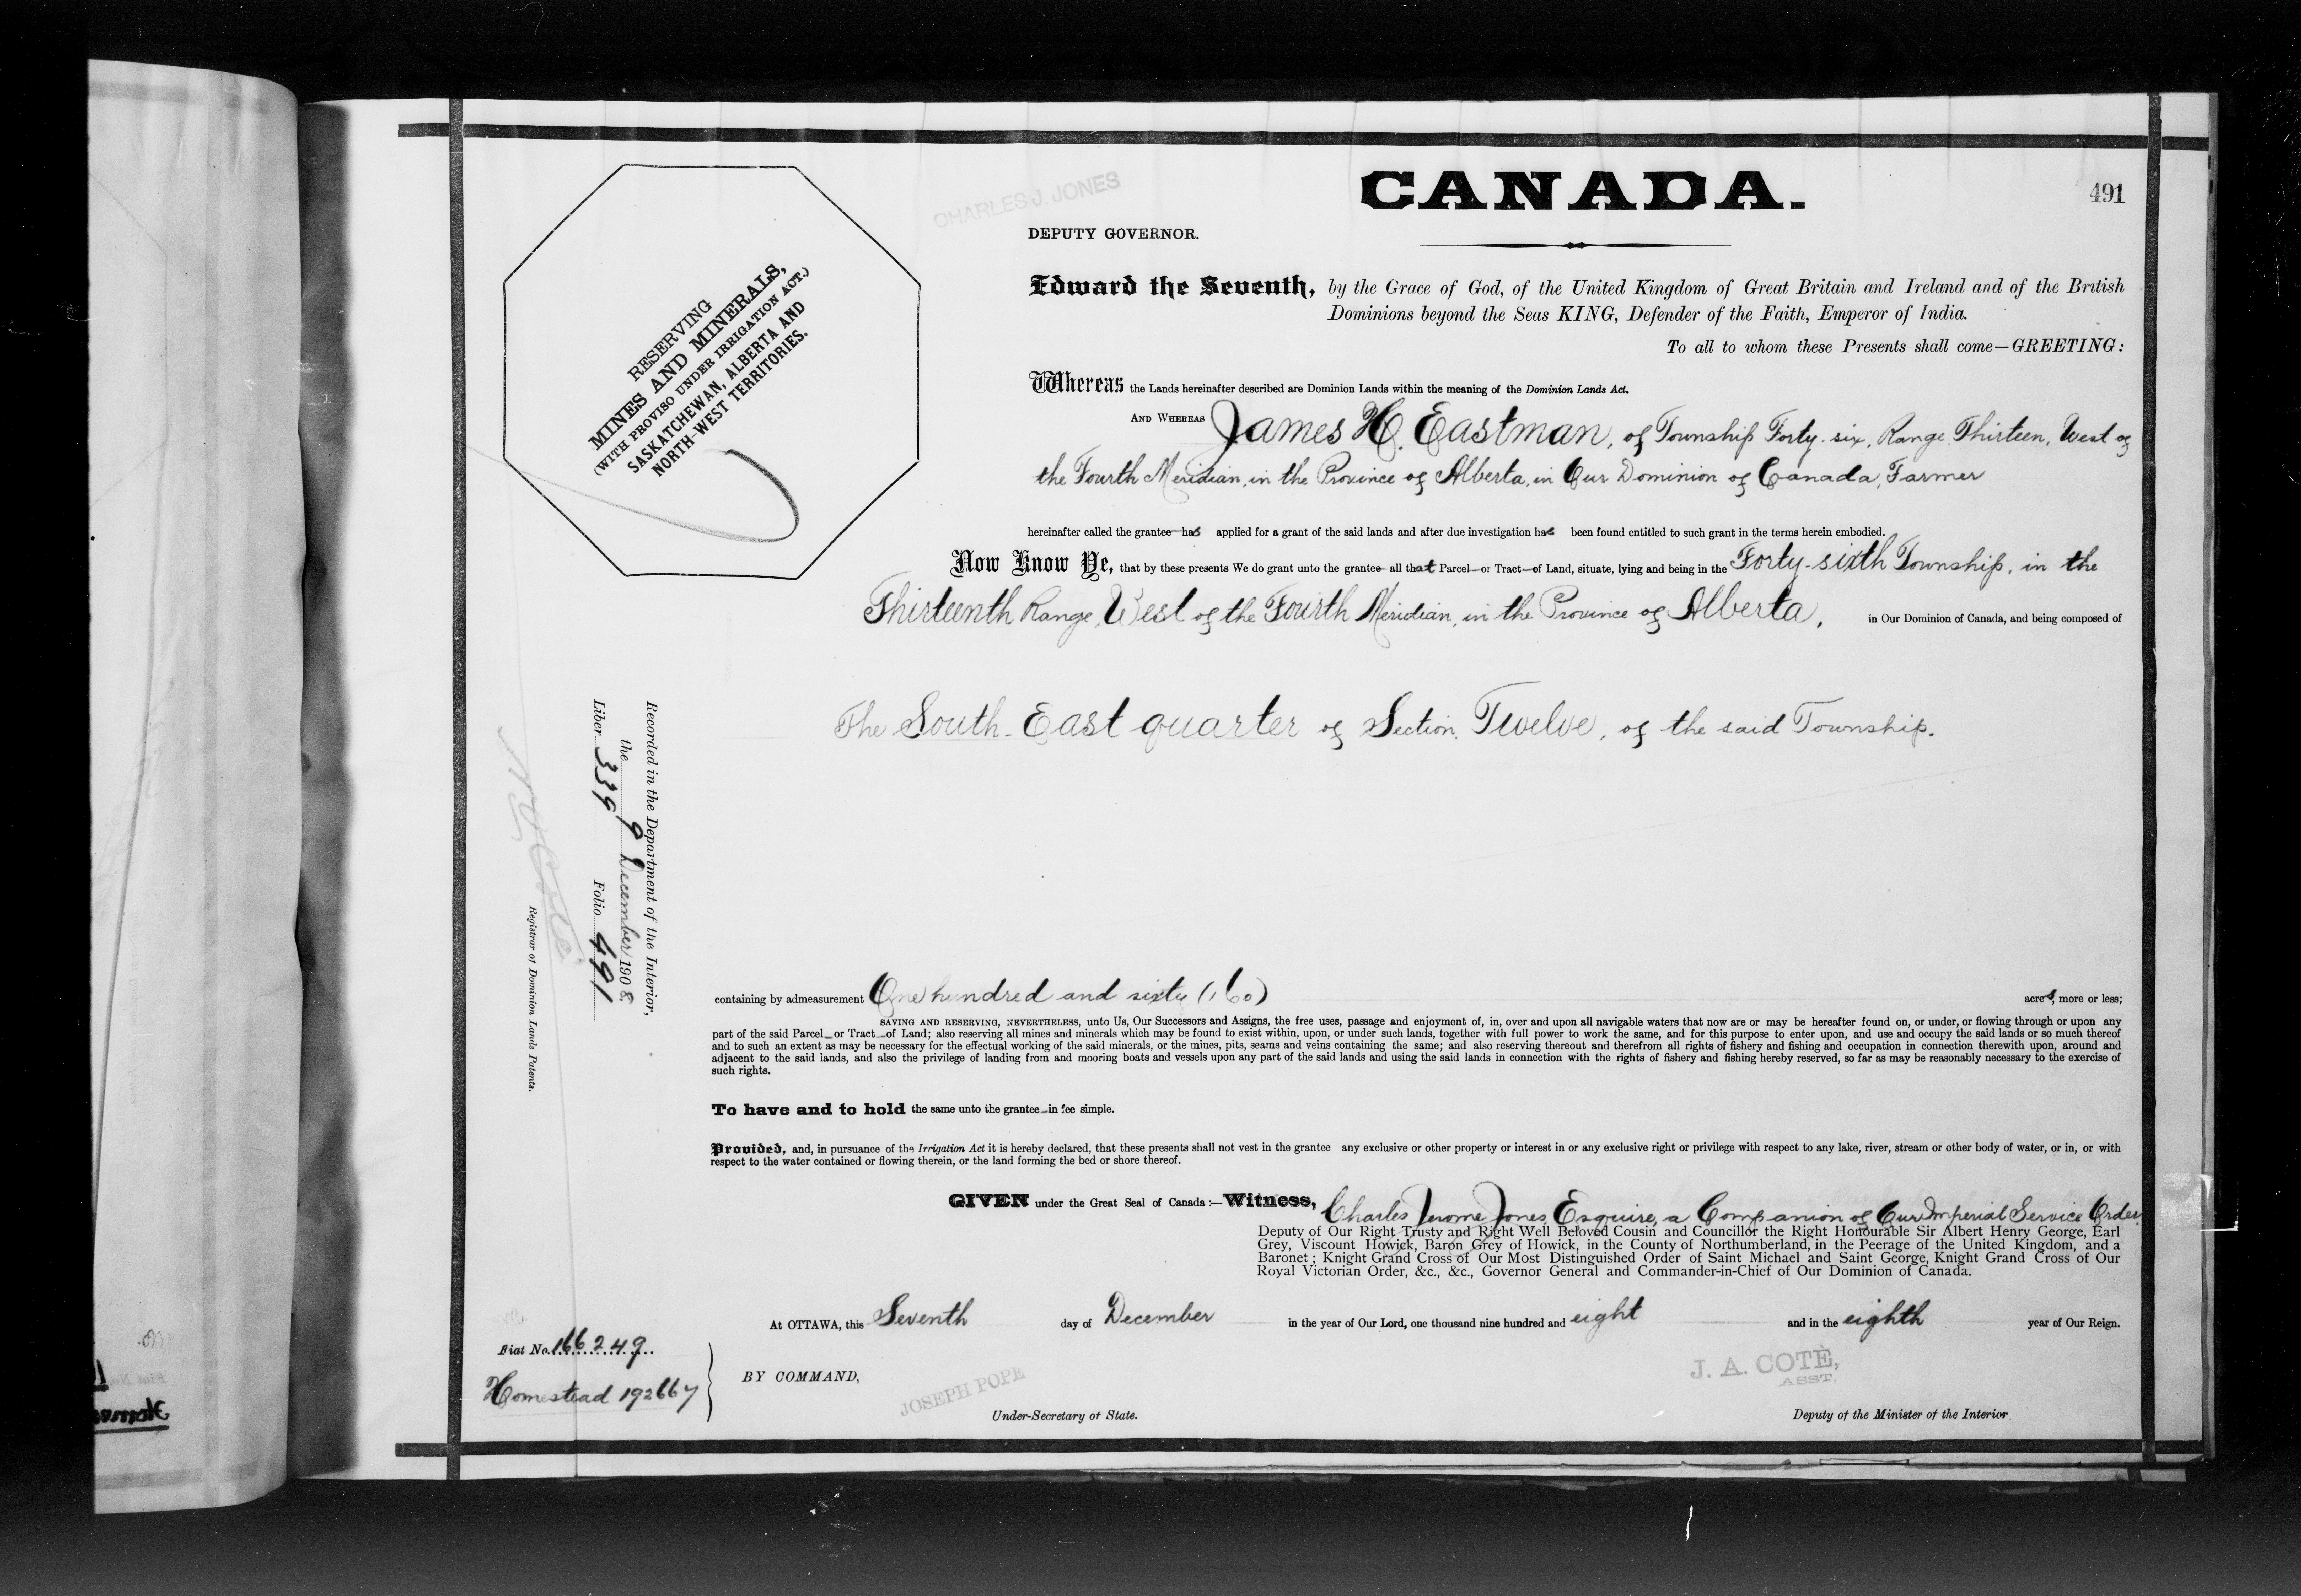 CHARLES J. JONES
CANADA.
491
DEPUTY GOVERNOR.
RESERVING
MINES AND MINERALS,
(WITH PROVISO UNDER IRRIGATION ACT.)
SASKATCHEWAN, ALBERTA AND
NORTH-WEST TERRITORIES.
Edward the Seventh, by the Grace of God, of the United Kingdom of Great Britain and Ireland and of the British
Dominions beyond the Seas KING, Defender of the Faith, Emperor of India.
To all to whom these Presents shall come—GREETING:
Whereas the Lands hereinafter described are Dominion Lands within the meaning of the Dominion Lands Act.
AND WHEREAS James H. Eastman, of Township Forty-six, Range Thirteen, West of
the Fourth Meridian, in the Province of Alberta, in Our Dominion of Canada, Farmer
hereinafter called the grantee has applied for a grant of the said lands and after due investigation has been found entitled to such grant in the terms herein embodied.
Now Know Ye, that by these presents We do grant unto the grantee all that Parcel or Tract of Land, situate, lying and being in the Forty-sixth Township, in the
Thirteenth Range, West of the Fourth Meridian, in the Province of Alberta, in Our Dominion of Canada, and being composed of
The South-East quarter of Section Twelve, of the said Township.
Recorded in the Department of the Interior,
the 9 December 1908
Liber 339 Folio 491
Registrar of Dominion Lands Patents.
containing by admeasurement One hundred and sixty (160) acres, more or less;
SAVING AND RESERVING, NEVERTHELESS, unto Us, Our Successors and Assigns, the free uses, passage and enjoyment of, in, over and upon all navigable waters that now are or may be hereafter found on, or under, or flowing through or upon any
part of the said Parcel or Tract of Land; also reserving all mines and minerals which may be found to exist within, upon, or under such lands, together with full power to work the same, and for this purpose to enter upon, and use and occupy the said lands or so much thereof
and to such an extent as may be necessary for the effectual working of the said minerals, or the mines, pits, seams and veins containing the same; and also reserving thereout and therefrom all rights of fishery and fishing and occupation in connection therewith upon, around and
adjacent to the said lands, and also the privilege of landing from and mooring boats and vessels upon any part of the said lands and using the said lands in connection with the rights of fishery and fishing hereby reserved, so far as may be reasonably necessary to the exercise of
such rights.
To have and to hold the same unto the grantee in fee simple.
Provided, and, in pursuance of the Irrigation Act it is hereby declared, that these presents shall not vest in the grantee any exclusive or other property or interest in or any exclusive right or privilege with respect to any lake, river, stream or other body of water, or in, or with
respect to the water contained or flowing therein, or the land forming the bed or shore thereof.
GIVEN under the Great Seal of Canada:—Witness, Charles Jerome Jones, Esquire, a Companion of Our Imperial Service Order,
Deputy of Our Right Trusty and Right Well Beloved Cousin and Councillor the Right Honourable Sir Albert Henry George, Earl
Grey, Viscount Howick, Baron Grey of Howick, in the County of Northumberland, in the Peerage of the United Kingdom, and a
Baronet; Knight Grand Cross of Our Most Distinguished Order of Saint Michael and Saint George, Knight Grand Cross of Our
Royal Victorian Order, &c., &c., Governor General and Commander-in-Chief of Our Dominion of Canada.
At OTTAWA, this Seventh day of December in the year of Our Lord, one thousand nine hundred and eight and in the eighth year of Our Reign.
Fiat No. 166249
Homestead 192667
BY COMMAND,
JOSEPH POPE
Under-Secretary of State.
J. A. COTÈ,
ASST.
Deputy of the Minister of the Interior